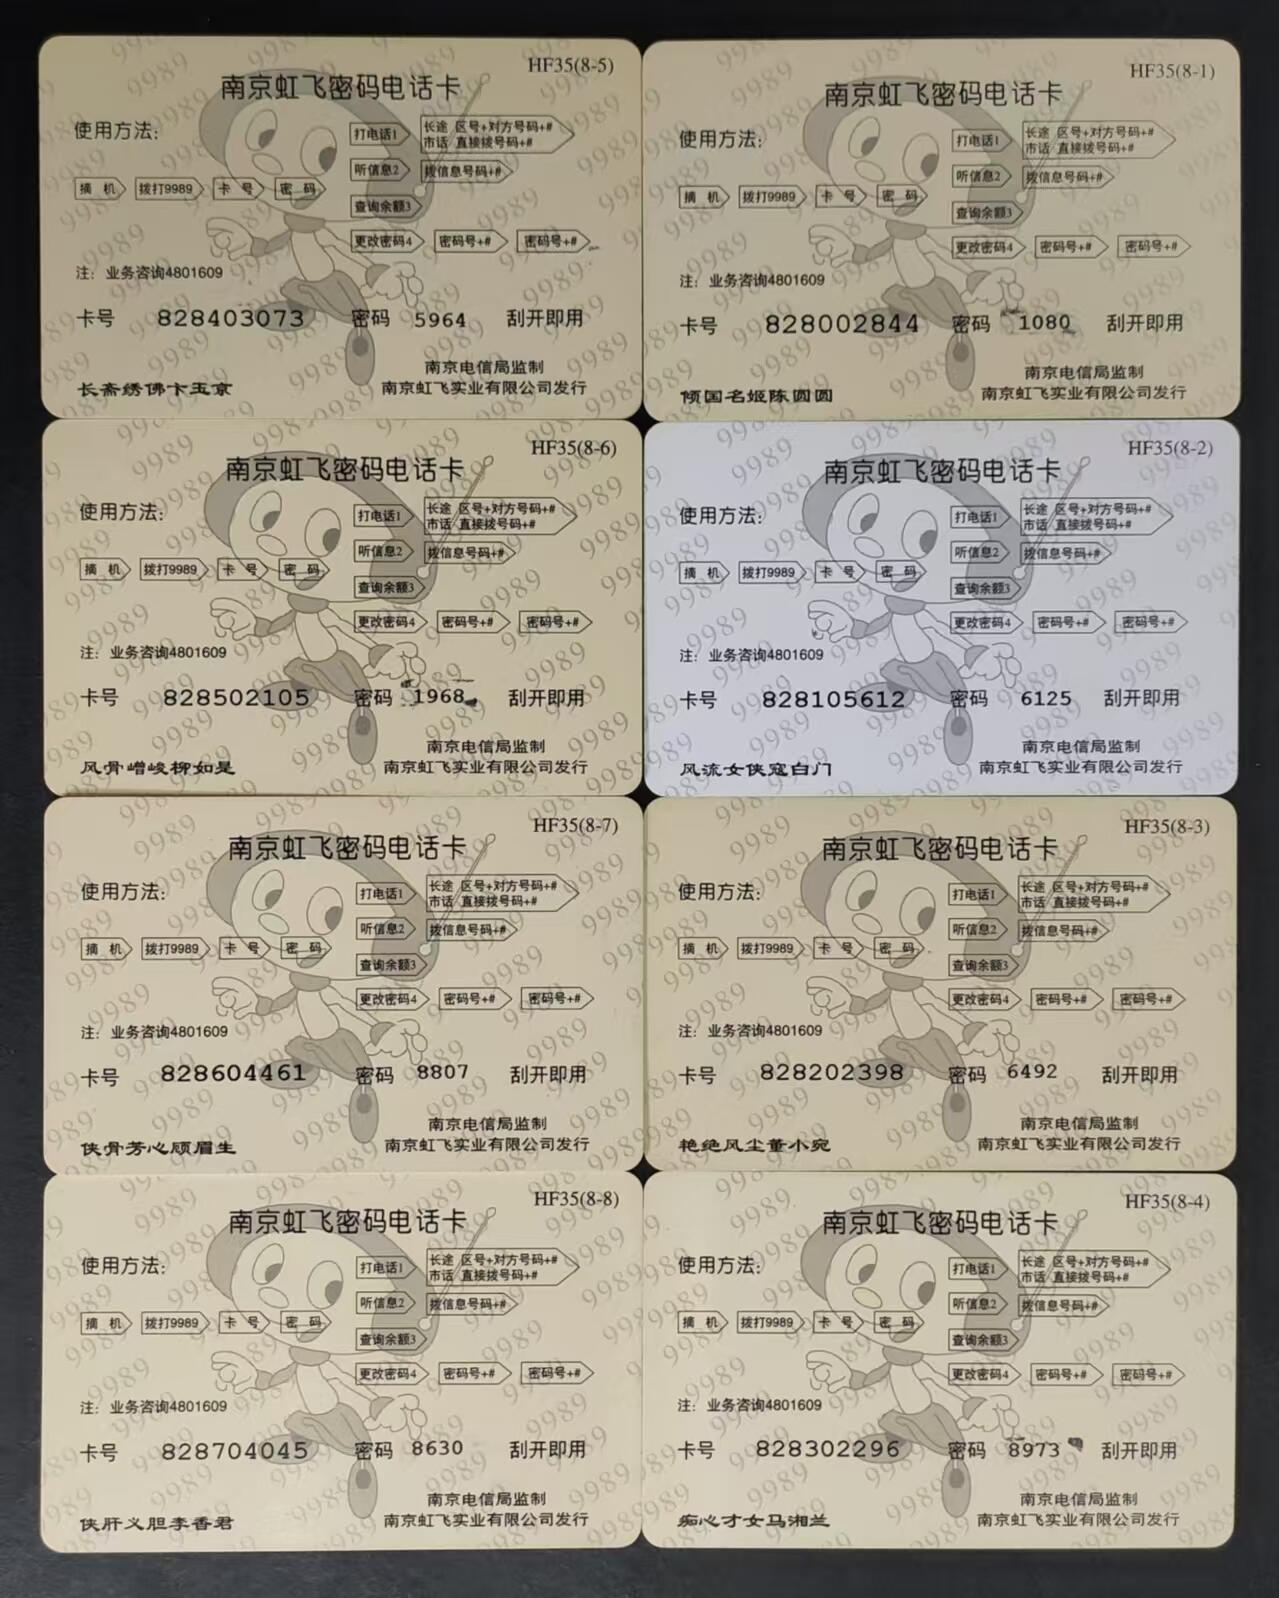 HF35(8-5)
南京虹飞密码电话卡
使用方法:
打电话1 长途 区号+对方号码+#
市话 直接拨号码+#
听信息2 拨信息号码+#
摘 机 拨打9989 卡 号 密 码
查询余额3
更改密码4 密码号+# 密码号+#
注: 业务咨询4801609
卡号 828403073 密码 5964 刮开即用
南京电信局监制
长斋绣佛卞玉京 南京虹飞实业有限公司发行
HF35(8-1)
南京虹飞密码电话卡
使用方法:
打电话1 长途 区号+对方号码+#
市话 直接拨号码+#
听信息2 拨信息号码+#
摘 机 拨打9989 卡 号 密 码
查询余额3
更改密码4 密码号+# 密码号+#
注: 业务咨询4801609
卡号 828002844 密码 1080 刮开即用
南京电信局监制
倾国名姬陈圆圆 南京虹飞实业有限公司发行
HF35(8-6)
南京虹飞密码电话卡
使用方法:
打电话1 长途 区号+对方号码+#
市话 直接拨号码+#
听信息2 拨信息号码+#
摘 机 拨打9989 卡 号 密 码
查询余额3
更改密码4 密码号+# 密码号+#
注: 业务咨询4801609
卡号 828502105 密码 1968 刮开即用
南京电信局监制
风骨嶒峻柳如是 南京虹飞实业有限公司发行
HF35(8-2)
南京虹飞密码电话卡
使用方法:
打电话1 长途 区号+对方号码+#
市话 直接拨号码+#
听信息2 拨信息号码+#
摘 机 拨打9989 卡 号 密 码
查询余额3
更改密码4 密码号+# 密码号+#
注: 业务咨询4801609
卡号 828105612 密码 6125 刮开即用
南京电信局监制
风流女侠寇白门 南京虹飞实业有限公司发行
HF35(8-7)
南京虹飞密码电话卡
使用方法:
打电话1 长途 区号+对方号码+#
市话 直接拨号码+#
听信息2 拨信息号码+#
摘 机 拨打9989 卡 号 密 码
查询余额3
更改密码4 密码号+# 密码号+#
注: 业务咨询4801609
卡号 828604461 密码 8807 刮开即用
南京电信局监制
侠骨芳心顾眉生 南京虹飞实业有限公司发行
HF35(8-3)
南京虹飞密码电话卡
使用方法:
打电话1 长途 区号+对方号码+#
市话 直接拨号码+#
听信息2 拨信息号码+#
摘 机 拨打9989 卡 号 密 码
查询余额3
更改密码4 密码号+# 密码号+#
注: 业务咨询4801609
卡号 828202398 密码 6492 刮开即用
南京电信局监制
艳绝风尘董小宛 南京虹飞实业有限公司发行
HF35(8-8)
南京虹飞密码电话卡
使用方法:
打电话1 长途 区号+对方号码+#
市话 直接拨号码+#
听信息2 拨信息号码+#
摘 机 拨打9989 卡 号 密 码
查询余额3
更改密码4 密码号+# 密码号+#
注: 业务咨询4801609
卡号 828704045 密码 8630 刮开即用
南京电信局监制
侠肝义胆李香君 南京虹飞实业有限公司发行
HF35(8-4)
南京虹飞密码电话卡
使用方法:
打电话1 长途 区号+对方号码+#
市话 直接拨号码+#
听信息2 拨信息号码+#
摘 机 拨打9989 卡 号 密 码
查询余额3
更改密码4 密码号+# 密码号+#
注: 业务咨询4801609
卡号 828302296 密码 8973 刮开即用
南京电信局监制
痴心才女马湘兰 南京虹飞实业有限公司发行